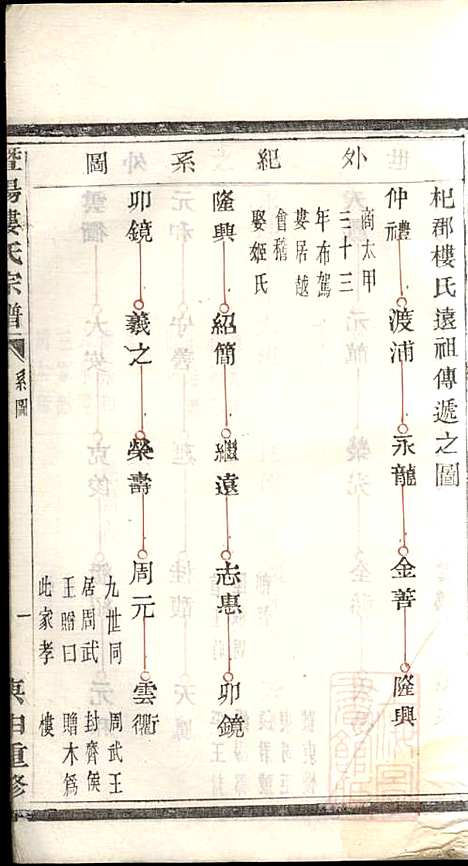 外紀系圖
杞郡樓氏遠祖傳遞之圖
仲禮 渡浦 永龍 金善 隆興
商太甲
三十三
年布駕
婁居越
會稽
娶姬氏
隆興 紹簡 繼遠 志惠 卯鏡
卯鏡 羲之 榮壽 周元 雲衢
九世同
居周武
王贈曰
此家孝
周武王
封齊侯
贈木爲
樓
暨陽婁氏宗譜
系圖
一
庚申重修